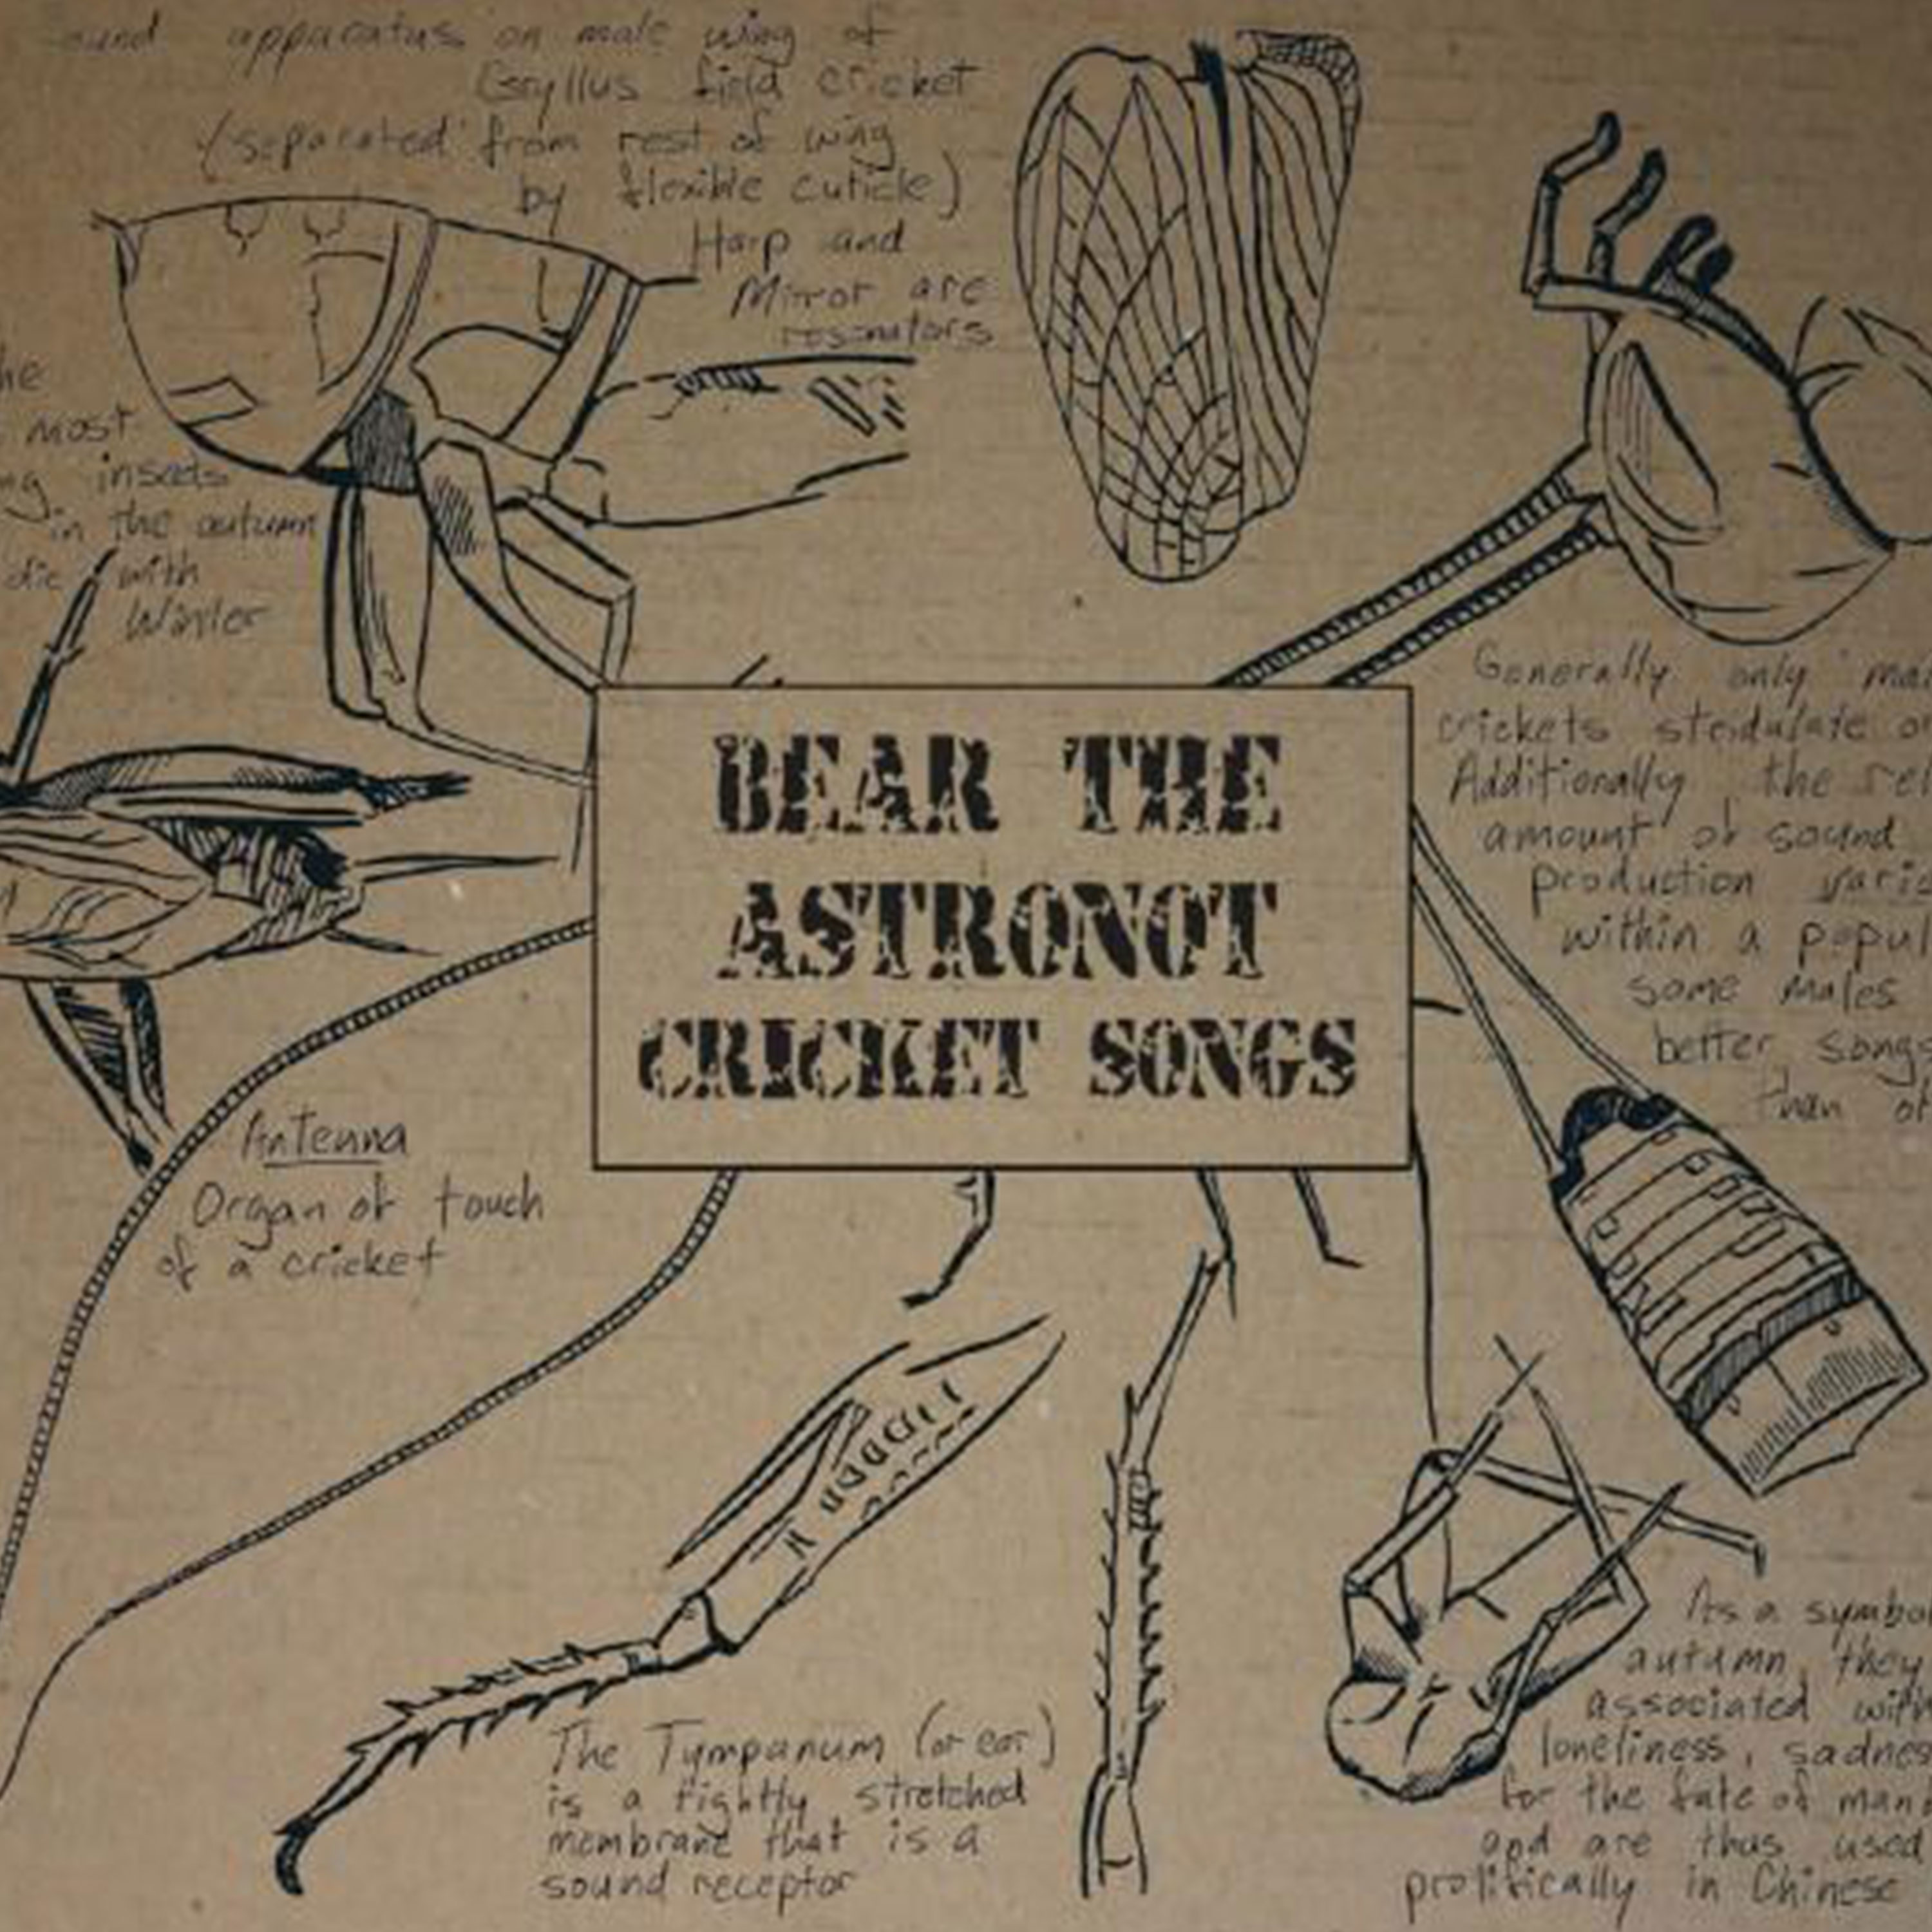 sound apparatus on male wing of
Gryllus field cricket
(separated from rest of wing
by flexible cuticle)
Harp and
Mirror are
resonators
he
most
ng insects
in the autumn
die with
Winter
BEAR THE
ASTRONOT
CRICKET SONGS
Generally only mal
crickets stridulate o
Additionally the rel
amount of sound
production varie
within a popul
some males
better songs
than ot
Antenna
Organ of touch
of a cricket
The Tympanum (or ear)
is a tightly stretched
membrane that is a
sound receptor
As a symbo
autumn, they
associated with
loneliness, sadnes
for the fate of man
and are thus used
prolifically in Chinese